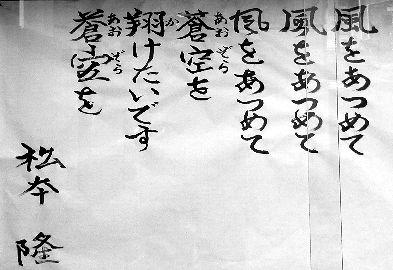 風をあつめて
風をあつめて
風をあつめて
蒼空を
翔けたいです
蒼空を
松本 隆